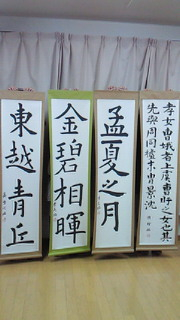 孝女曹娥者上虞曹盱之女也其
先與周同祖末胄景沈
孟夏之月
金碧相暉
東越青丘